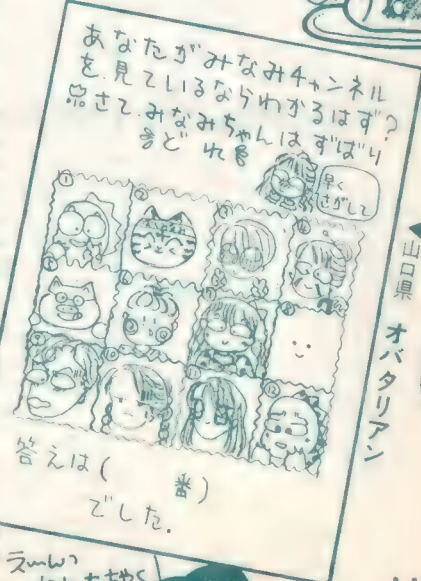 あなたがみなみチャンネル
を見ているならわかるはず?
さて、みなみちゃんはずばり
どれ
早く
さがして
答えは( 番)
でした.
山口県 オバタリアン